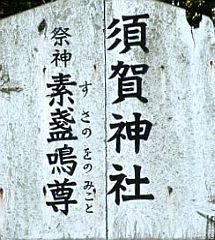 須賀神社
祭神 素盞嗚尊
すさのをのみこと